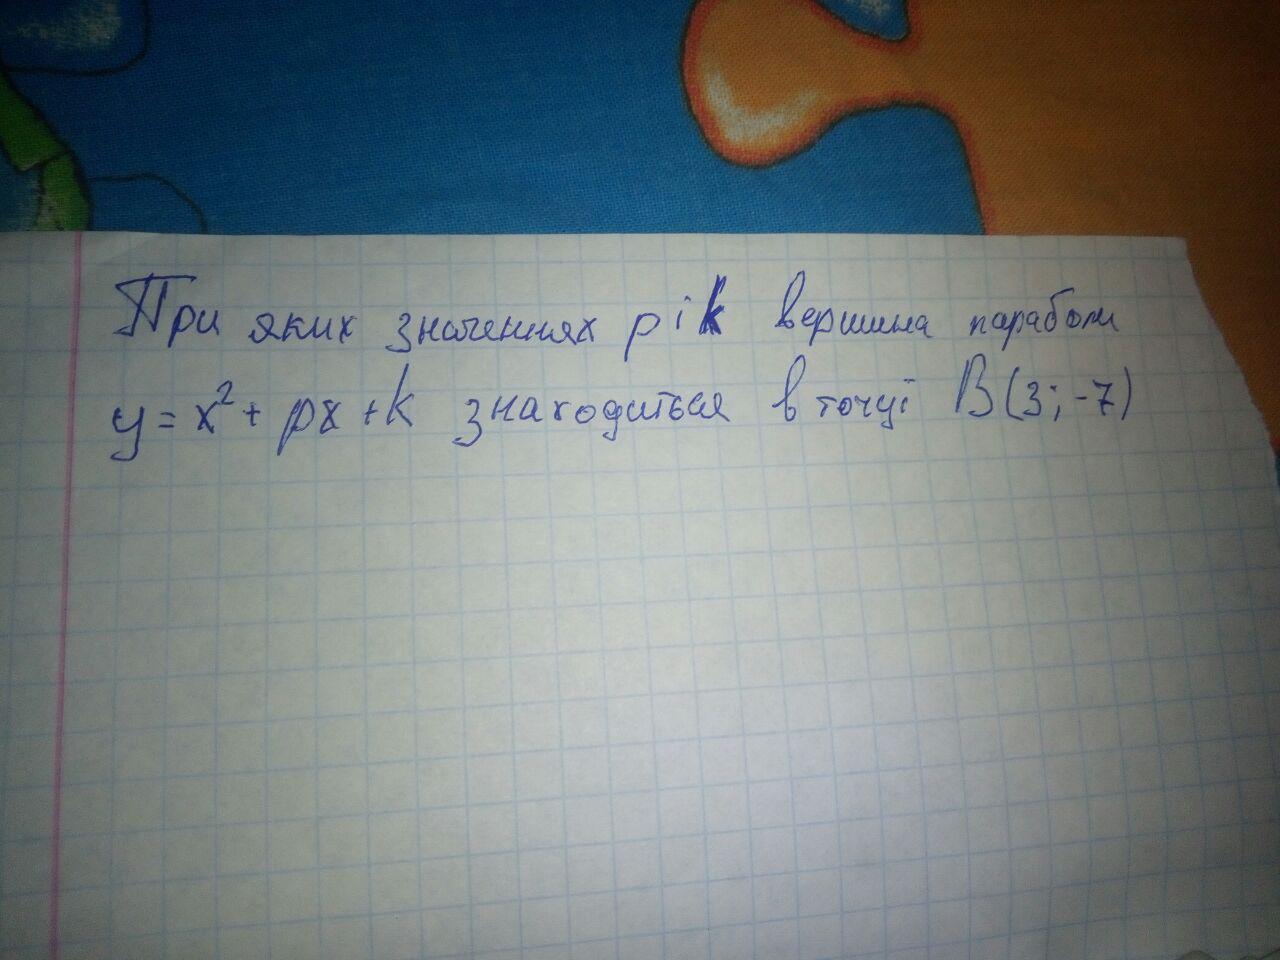 При яких значеннях p і k вершина параболи
y = x² + px + k знаходиться в точці B(3; -7)